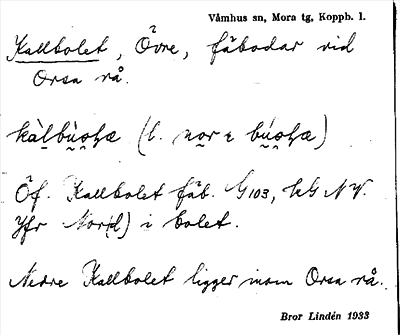 Våmhus sn, Mora tg, Koppb. l.
Kallbolet, Övre, fäbodar vid
Orsa rå.
Öf. Kallbolet fäb. G103, hG NV.
Yfr Nor(d) i bolet.
Nedre Kallbolet ligger inom Orsa rå.
Bror Lindén 1933